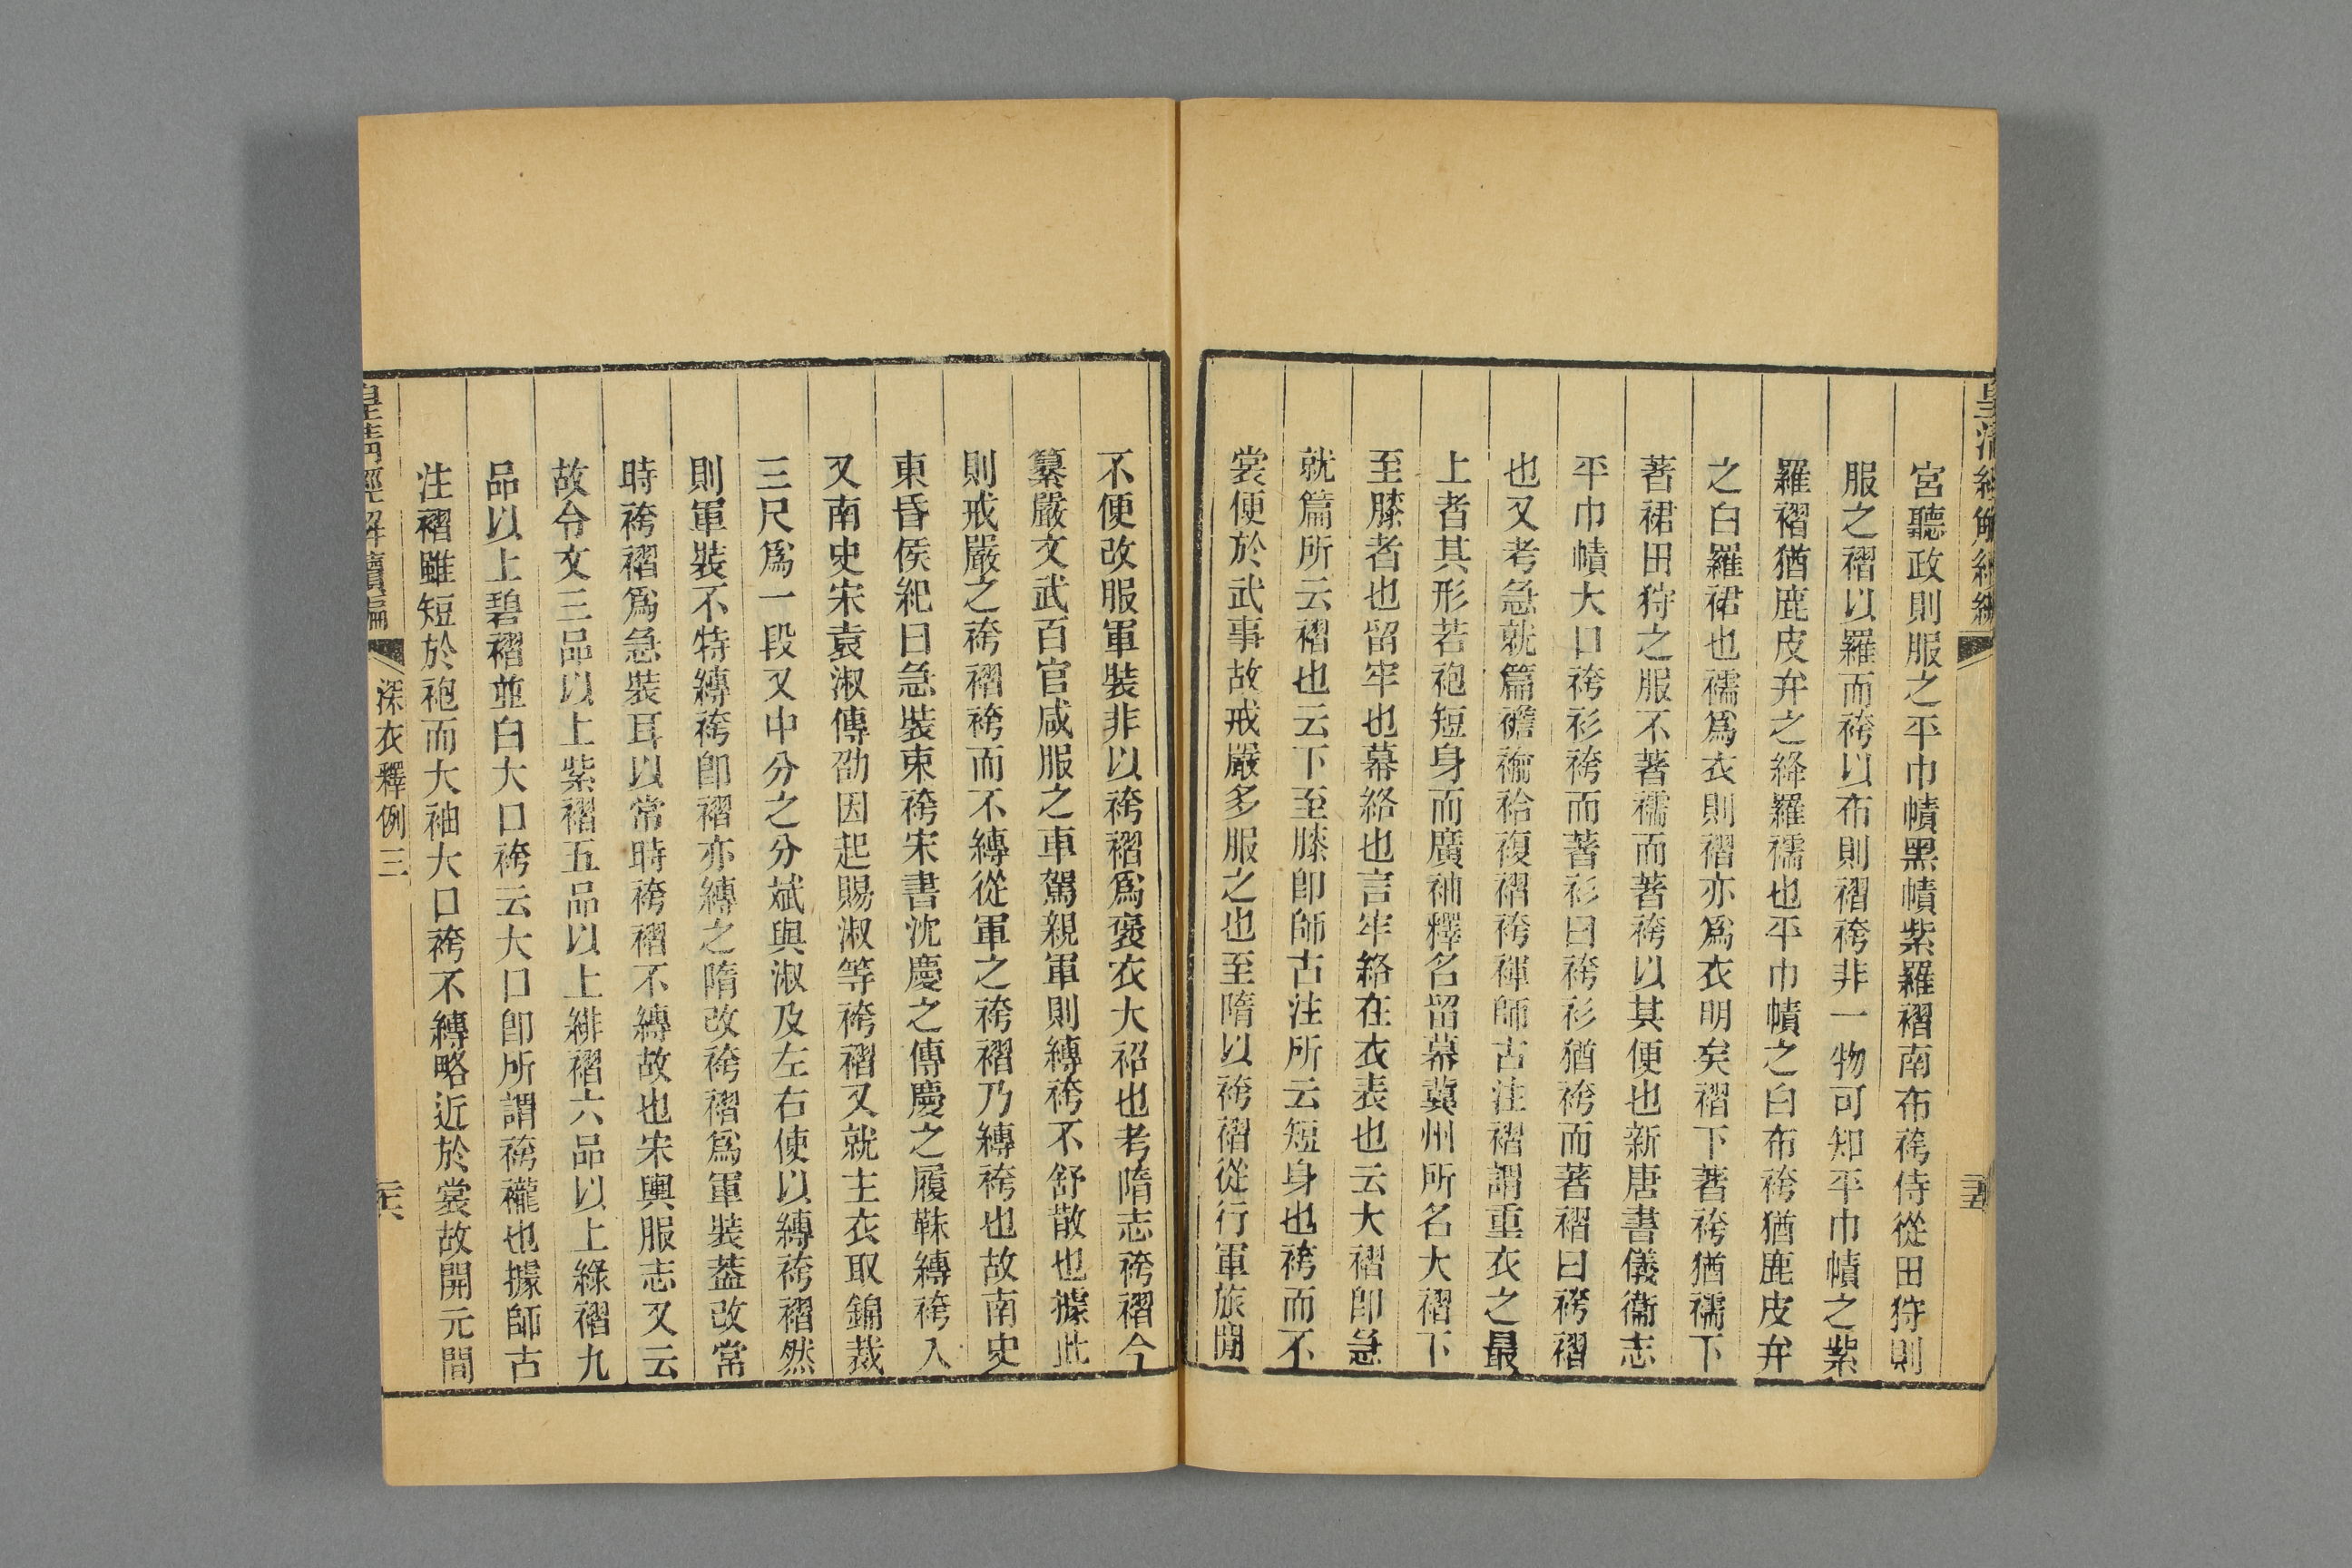 皇清經解續編
宮聽政則服之平巾幘黑幘紫羅褶南布袴侍從田狩則
服之褶以羅而袴以布則褶袴非一物可知平巾幘之紫
羅褶猶鹿皮弁之絳羅襦也平巾幘之白布袴猶鹿皮弁
之白羅裙也襦爲衣則褶亦爲衣明矣褶下著袴猶襦下
著裙田狩之服不著襦而著袴以其便也新唐書儀衞志
平巾幘大口袴衫袴而著衫曰袴衫猶袴而著褶曰袴褶
也又考急就篇襜褕袷複褶袴褌師古注褶謂重衣之最
上者其形若袍短身而廣袖釋名留幕冀州所名大褶下
至膝者也留牢也幕絡也言牢絡在衣表也云大褶卽急
就篇所云褶也云下至膝卽師古注所云短身也袴而不
裳便於武事故戒嚴多服之也至隋以袴褶從行軍旅閒
不便改服軍裝非以袴褶爲襃衣大袑也考隋志袴褶今
纂嚴文武百官咸服之車駕親軍則縛袴不舒散也據此
則戒嚴之袴褶袴而不縛從軍之袴褶乃縛袴也故南史
東昏侯紀曰急裝束袴宋書沈慶之傳慶之履韎縛袴入
又南史宋袁淑傳劭因起賜淑等袴褶又就主衣取錦裁
三尺爲一段又中分之分斌與淑及左右使以縛袴褶然
則軍裝不特縛袴卽褶亦縛之隋改袴褶爲軍裝葢改常
時袴褶爲急裝耳以常時袴褶不縛故也宋輿服志又云
故令文三品以上紫褶五品以上緋褶六品以上綠褶九
品以上碧褶並白大口袴云大口卽所謂袴襱也據師古
注褶雖短於袍而大袖大口袴不縛略近於裳故開元間
皇清經解續編
深衣釋例三